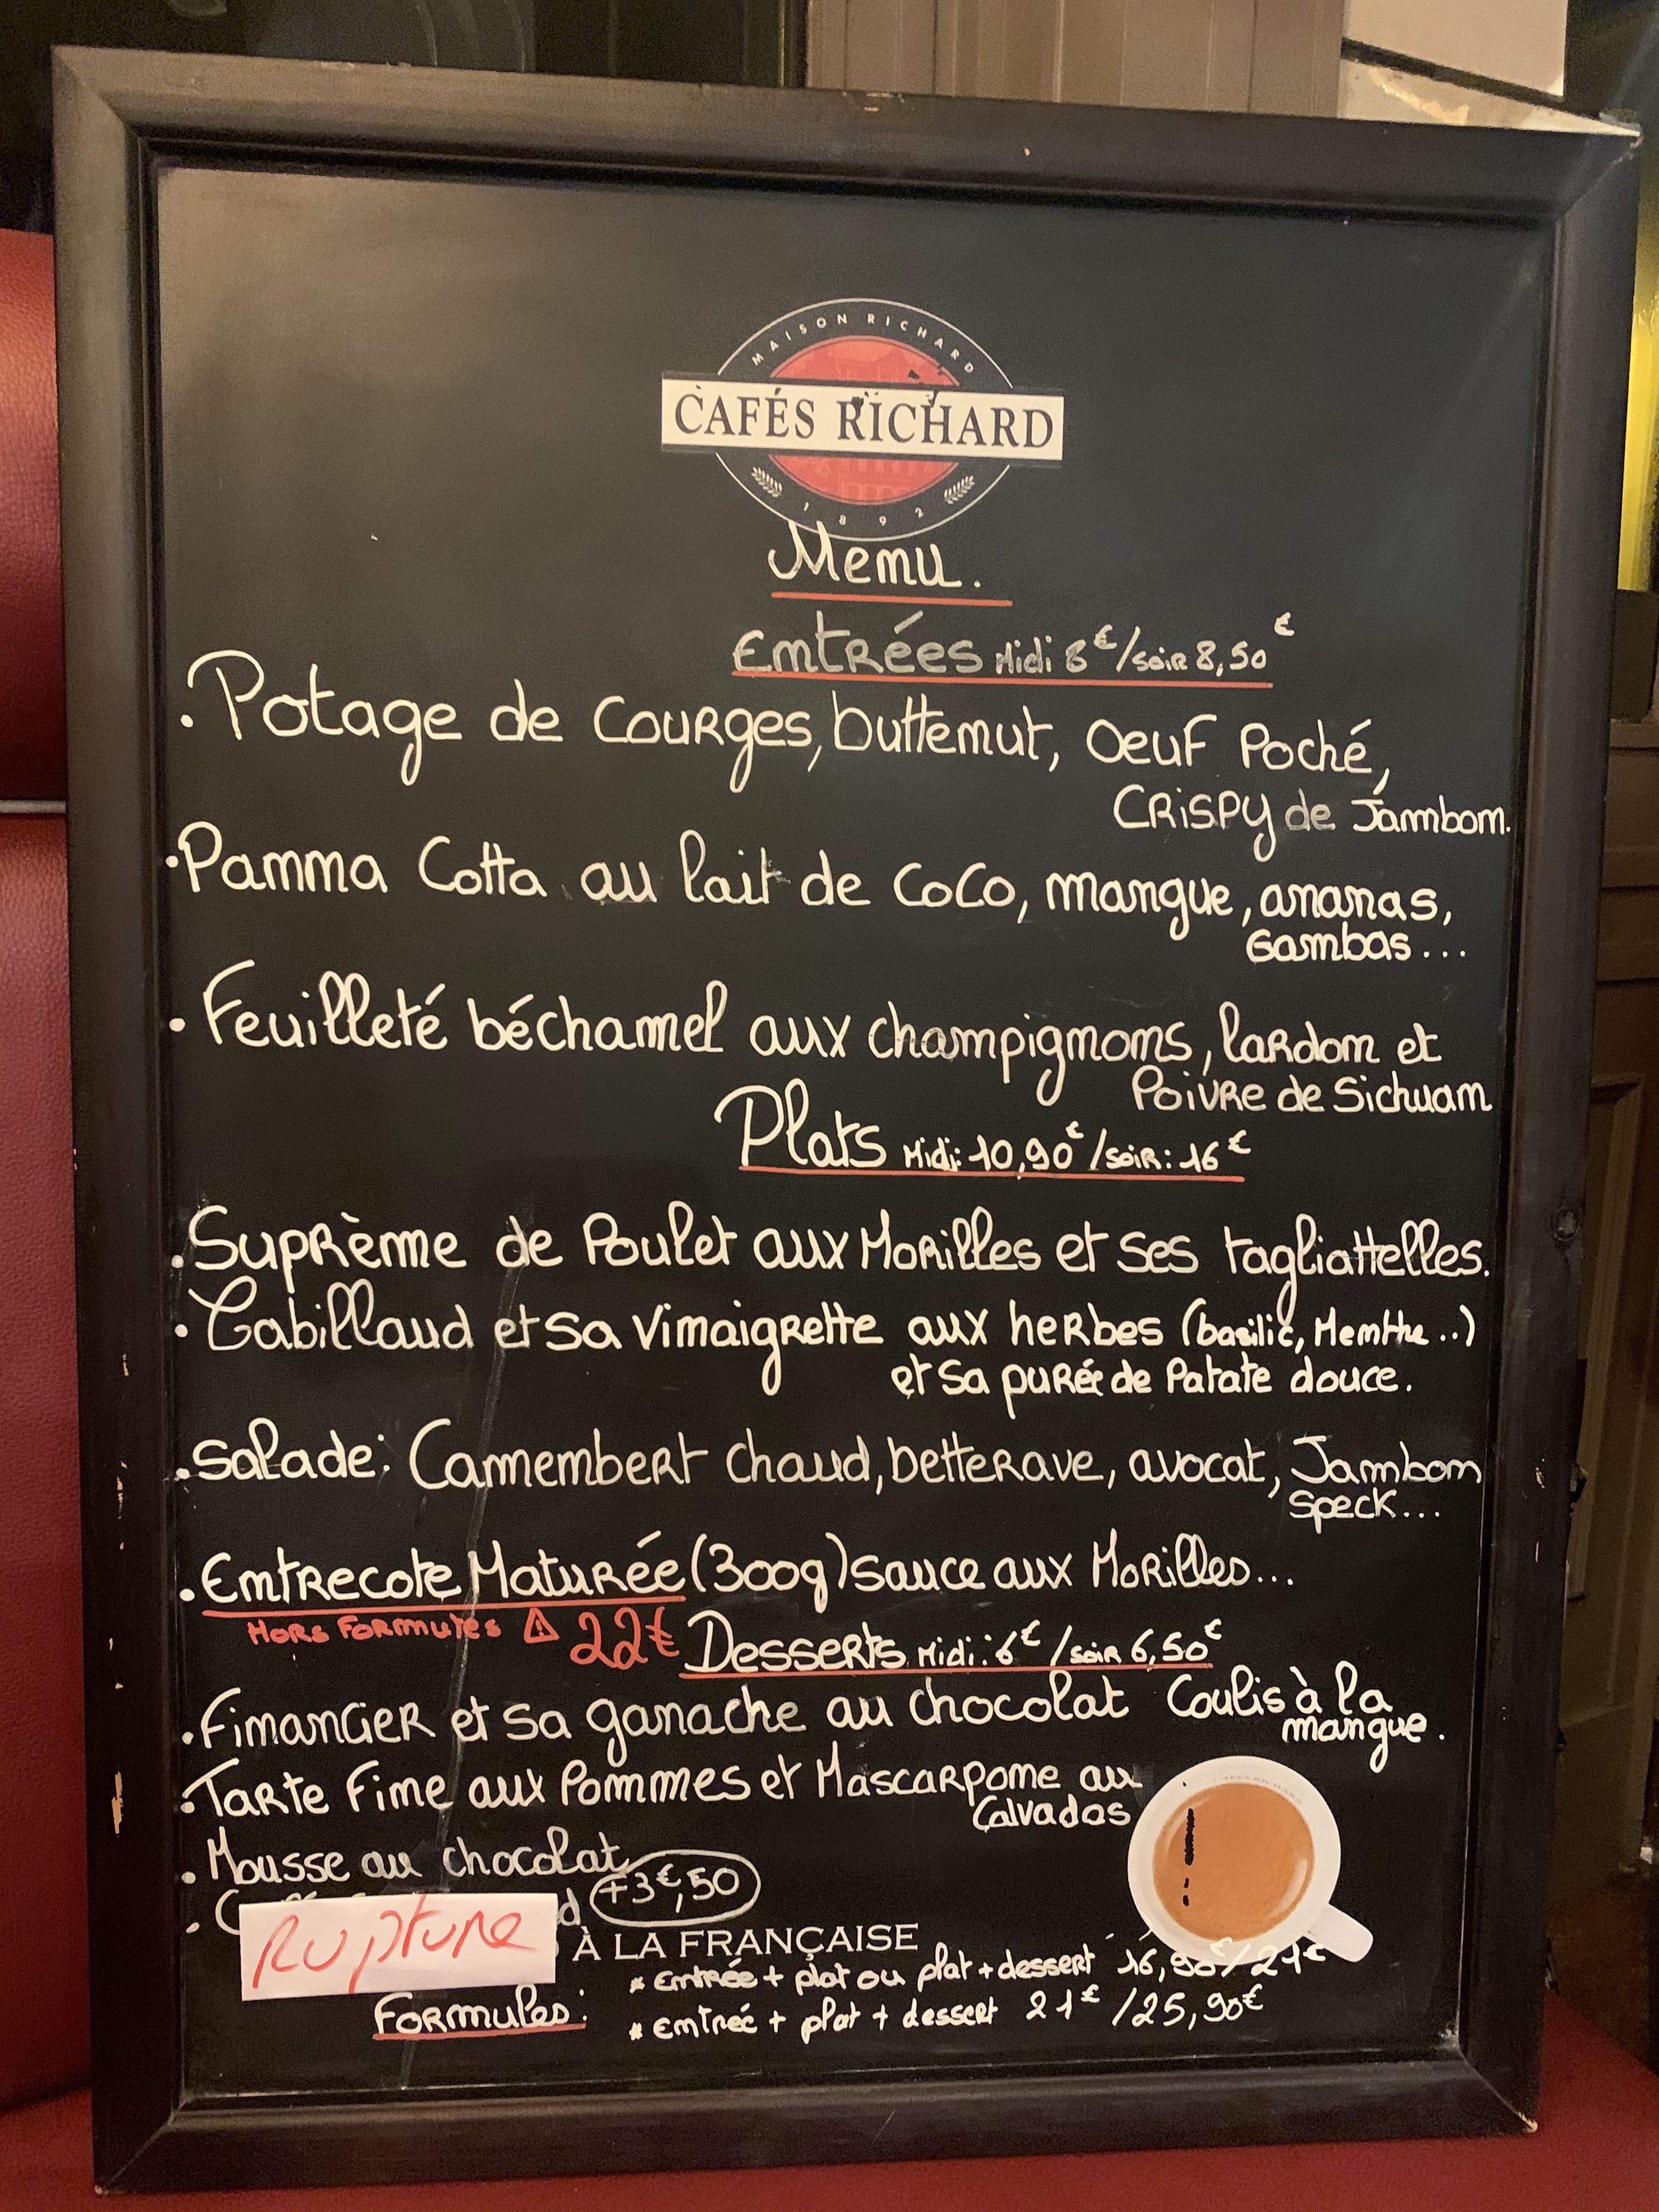 MAISON RICHARD
CAFÉS RICHARD
1892
Menu.
Entrées Midi 8€/soir 8,50€
. Potage de Courges, butternut, Oeuf Poché,
Crispy de Jambon.
. Panna Cotta au lait de coco, mangue, ananas,
Gambas...
. Feuilleté béchamel aux champignons, lardon et
Poivre de Sichuan
Plats Midi: 10,90€/soir: 16€
. Suprème de Poulet aux Morilles et ses tagliattelles.
. Cabillaud et sa Vinaigrette aux herbes (basilic, Menthe..)
et sa purée de Patate douce.
. Salade: Camembert chaud, betterave, avocat, Jambon
Speck...
. Entrecote Maturée (300g) sauce aux Morilles...
Hors Formules ⚠ 22€
Desserts Midi: 6€ / soir 6,50€
. Financier et sa ganache au chocolat Coulis à la
mangue.
. Tarte Fine aux Pommes et Mascarpone au
Calvados
. Mousse au chocolat
+3€,50
Rupture
À LA FRANÇAISE
* Entrée + plat ou plat + dessert
Formules: * entrée + plat + dessert 21€ /25,90€